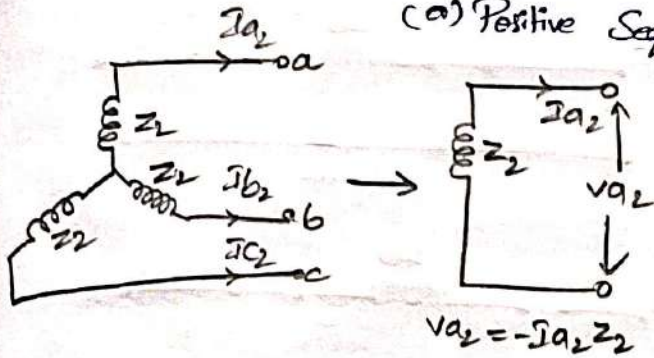 (a) Positive Seq
Ia₂
a
Z₂
Z₂
Ib₂
b
Z₂
Ic₂
c
Ia₂
Z₂
Va₂
Va₂ = -Ia₂ Z₂